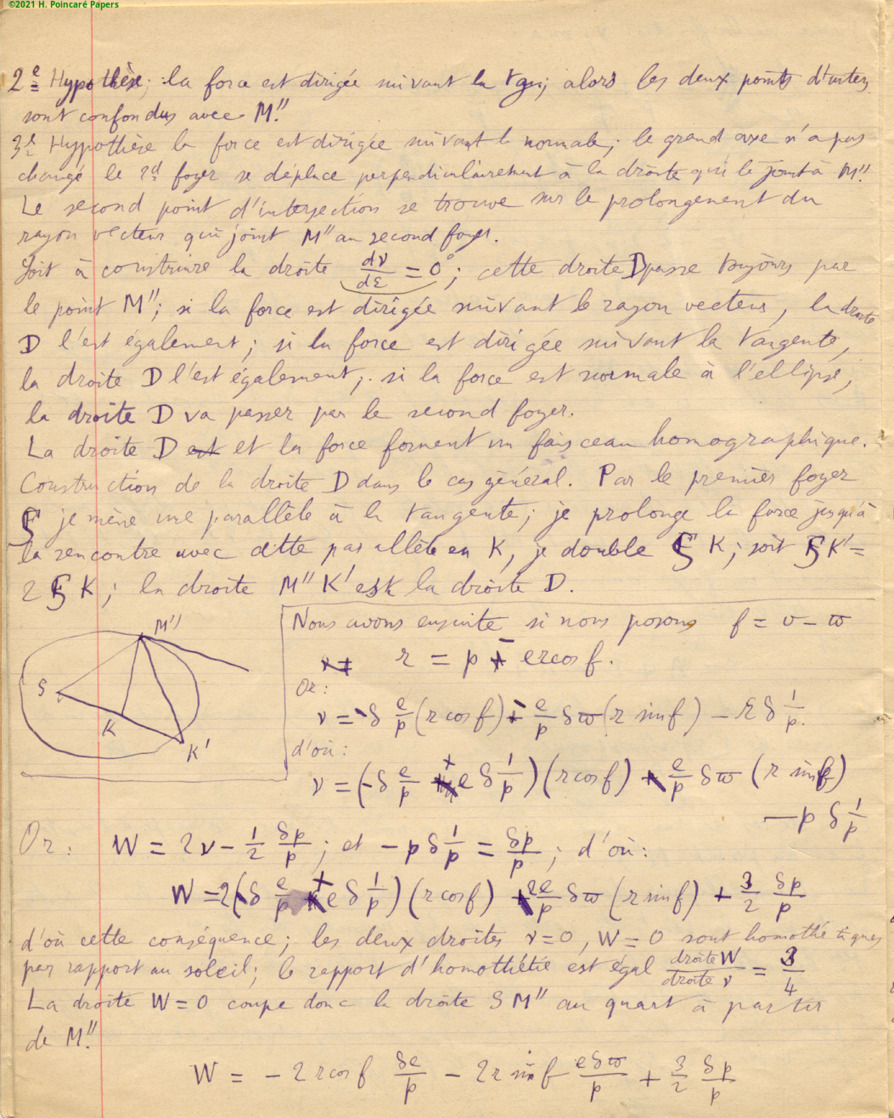 ©2021 H. Poincaré Papers
2e Hypothèse; la force est dirigée suivant la tgte; alors les deux points d'inters
sont confondus avec M''.
3e Hypothèse la force est dirigée suivant la normale; le grand axe n'a pas
changé le 2d foyer se déplace perpendiculairement à la droite qui le joint à M''.
Le second point d'intersection se trouve sur le prolongement du
rayon vecteur qui joint M'' au second foyer.
Soit à construire la droite dν/dε = 0; cette droite D passe toujours par
le point M''; si la force est dirigée suivant le rayon vecteur, la droite
D l'est également; si la force est dirigée suivant la tangente,
la droite D l'est également; si la force est normale à l'ellipse,
la droite D va passer par le second foyer.
La droite D est et la force forment un faisceau homographique.
Construction de la droite D dans le cas général. Par le premier foyer
S je mène une parallèle à la tangente; je prolonge la force jusqu'à
la rencontre avec ditte parallèle en K, je double S K; soit S K' =
2 S K; la droite M'' K' est la droite D.
M''
S
K
K'
Nous avons ensuite si nous posons f = v - ϖ
r = p - er cos f.
Or:
ν = -δ e/p (r cos f) - e/p δϖ (r sin f) - r δ 1/p.
d'où:
ν = (-δ e/p + e δ 1/p) (r cos f) - e/p δϖ (r sin f)
- p δ 1/p
Or: W = 2ν - 1/2 δp/p; et - p δ 1/p = δp/p; d'où:
W = 2(-δ e/p + e δ 1/p) (r cos f) - 2e/p δϖ (r sin f) + 3/2 δp/p
d'où cette conséquence; les deux droites ν = 0, W = 0 sont homothétiques
par rapport au soleil; le rapport d'homothétie est égal droite W/droite ν = 3/4
La droite W = 0 coupe donc la droite S M'' au quart à partir
de M''.
W = - 2 r cos f δe/p - 2 r sin f e δϖ/p + 3/2 δp/p